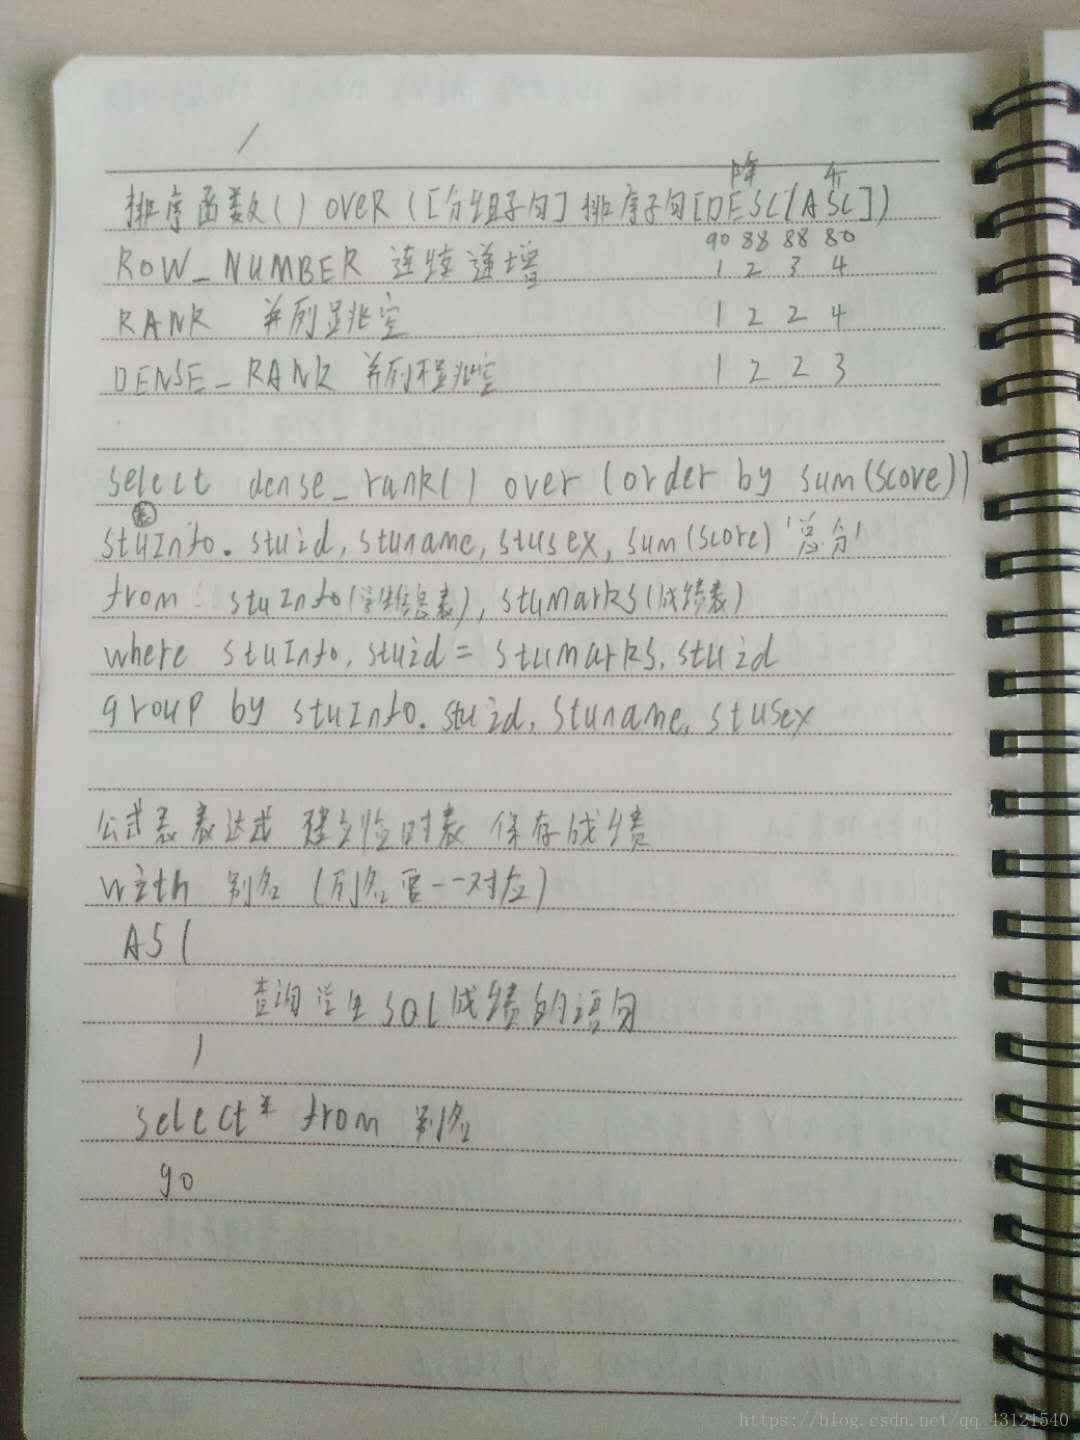 降 升
排序函数() OVER ([分组子句] 排序子句[DESC/ASC])
90 88 88 80
ROW_NUMBER 连续递增 1 2 3 4
RANK 并列且跳空 1 2 2 4
DENSE_RANK 并列不跳空 1 2 2 3
select dense_rank() over (order by sum(score))
stuInfo.stuid, stuname, stusex, sum(score) '总分'
from stuInfo(学生信息表), stuMarks(成绩表)
where stuInfo.stuid = stumarks.stuid
group by stuInfo.stuid, stuname, stusex
公式表表达式 建立临时表 保存成绩
with 别名 (列名要一一对应)
AS (
查询学生SQL成绩的语句
)
select * from 别名
go
https://blog.csdn.net/qq_43121540